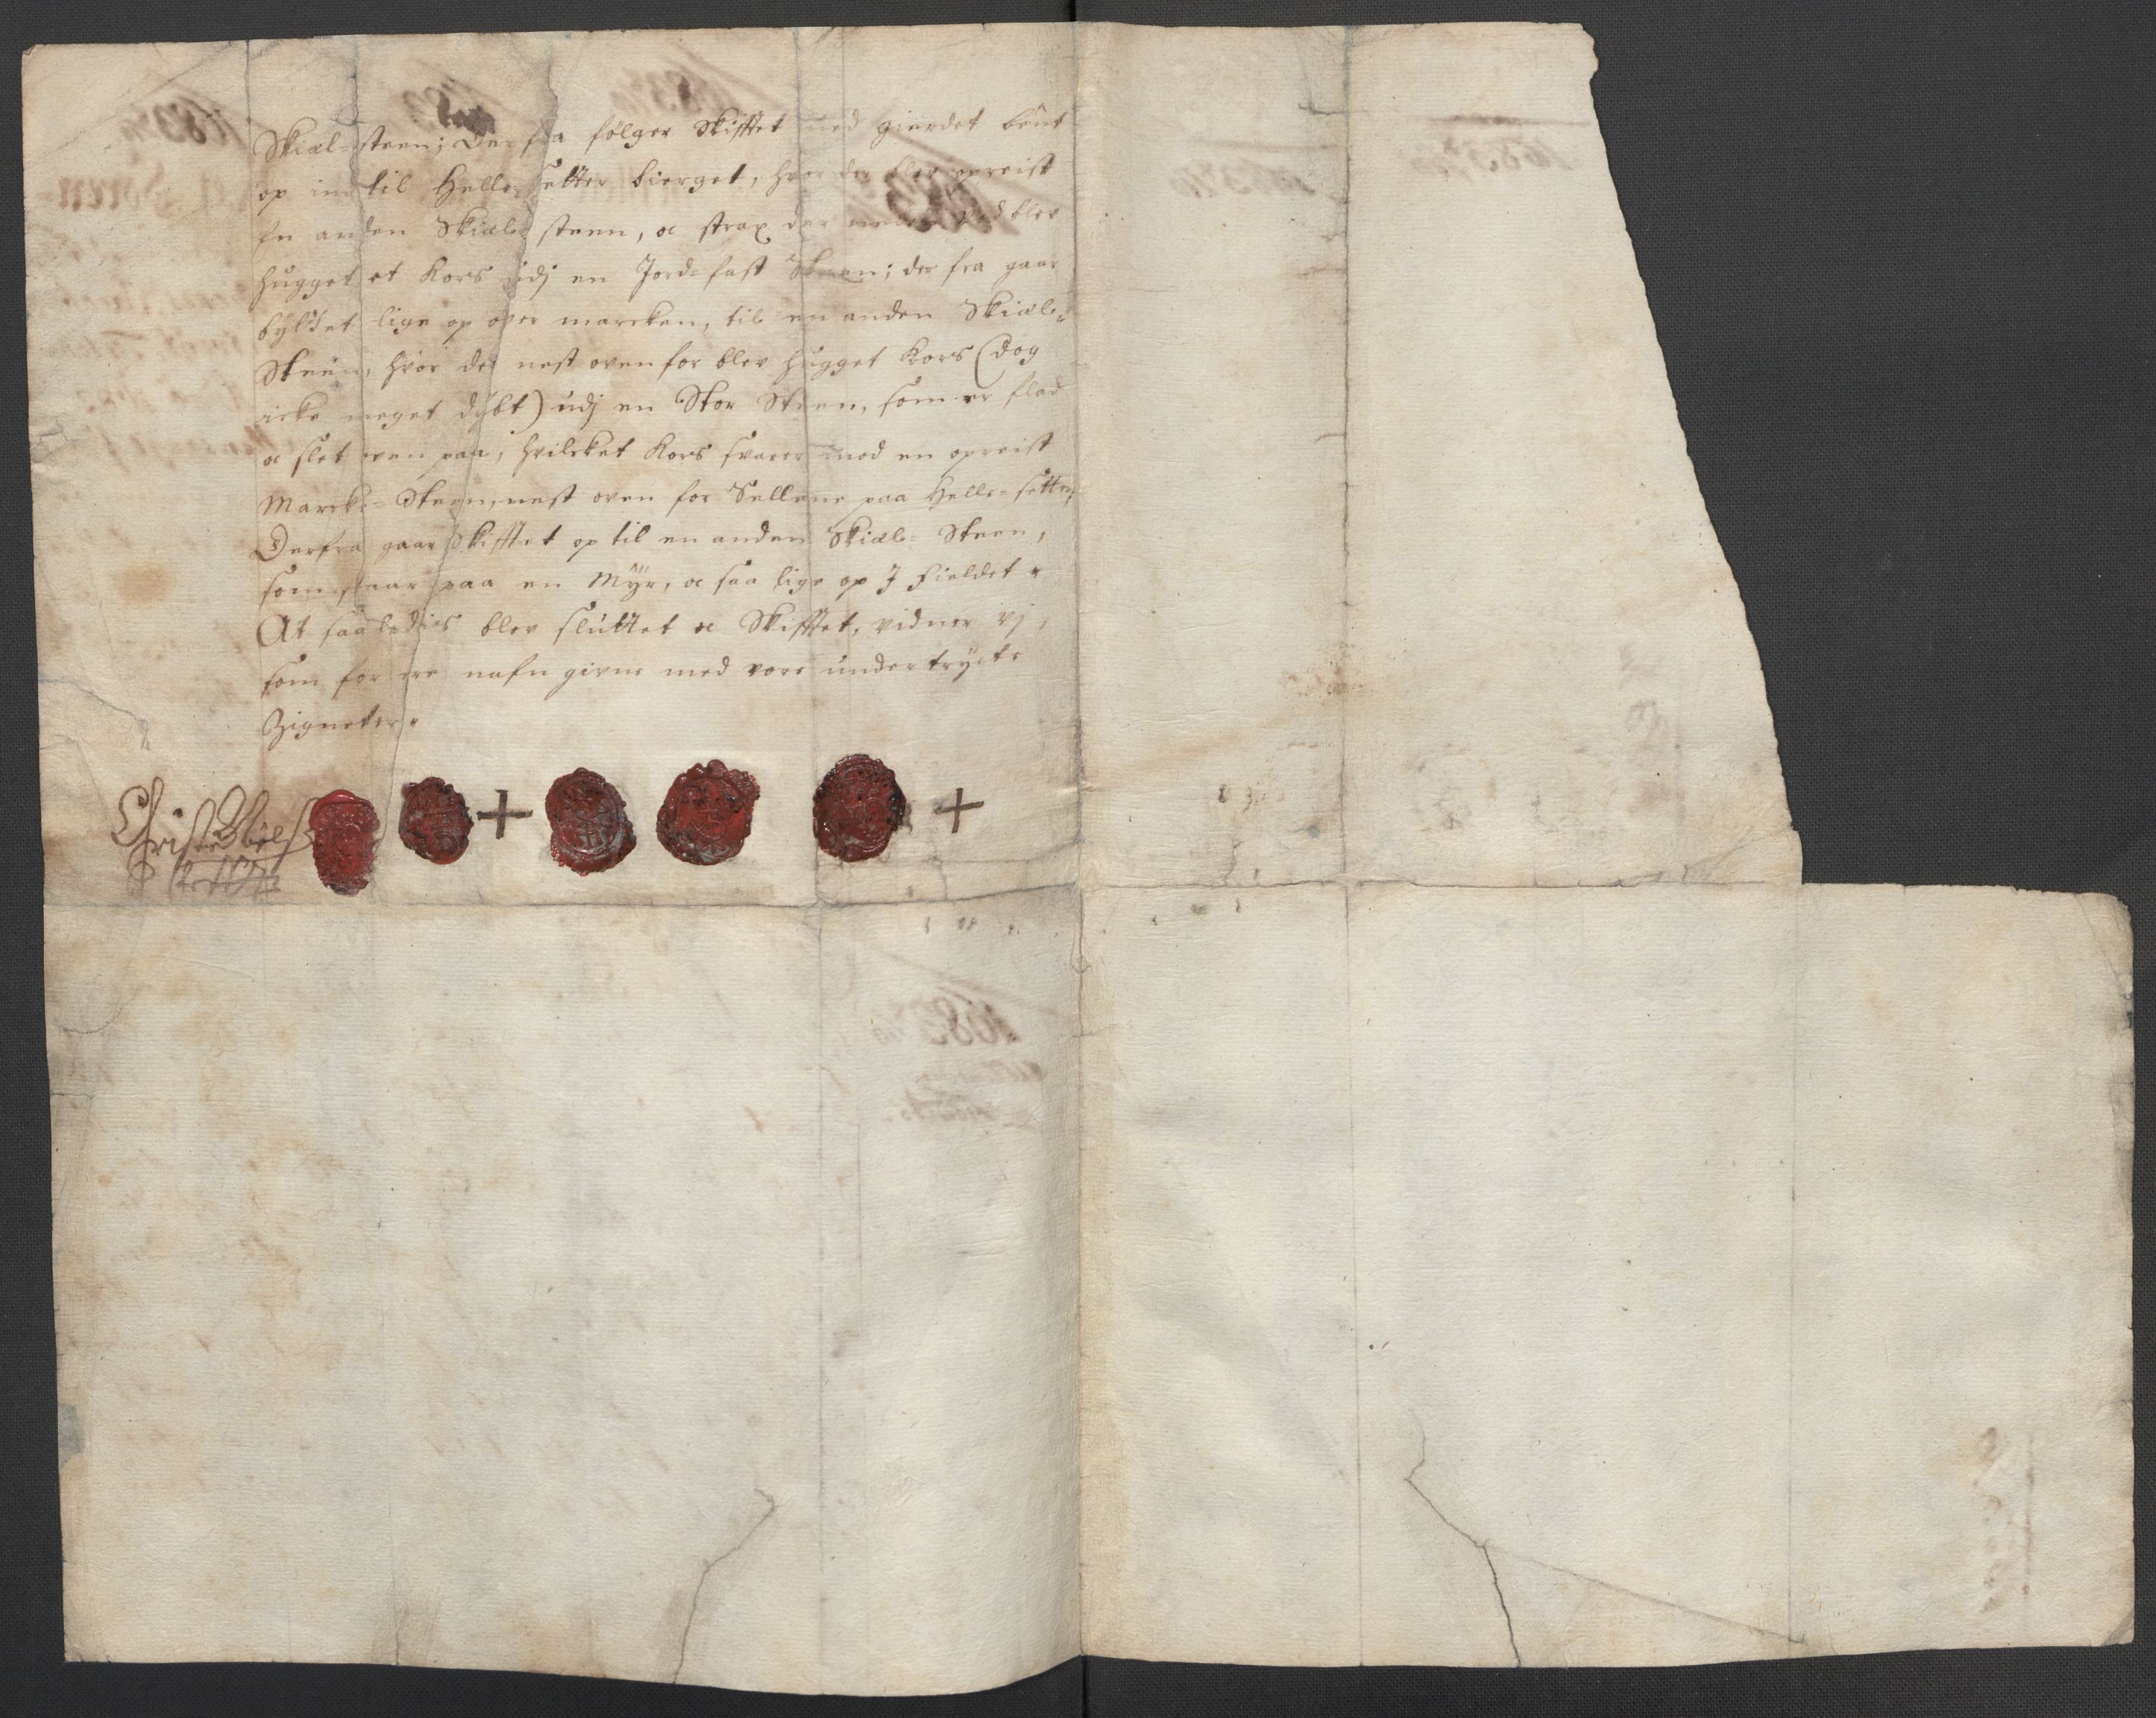 Skiæl-steen; Der fra følger Skifftet med gierdet bent
op ind til Helle-setter bierget, hvor der blev opreist
En anden Skiæl-steen, oc strax der neden ved blev
hugget et Kors udj en Jord-fast Steen; der fra gaar
byttet lige op over marcken, til en anden Skiæl-
Steen, hvor der nest oven for blev hugget Kors (dog
icke meget dybt) udj en Stor Steen, som er flad
oc slet oven paa, hvilcket Kors svarer mod en opreist
Marcke-Steen, nest oven for Sellene paa Helle-setter,
Derfra gaar Skifftet op til en anden Skiæl-Steen,
som staar paa en Myr, oc saa lige op J Fieldet.
At saaledis blev sluttet oc Skifftet, vidner vj,
som for ere nafn givne med vore undertryckte
Zigneter.
+ +
1683